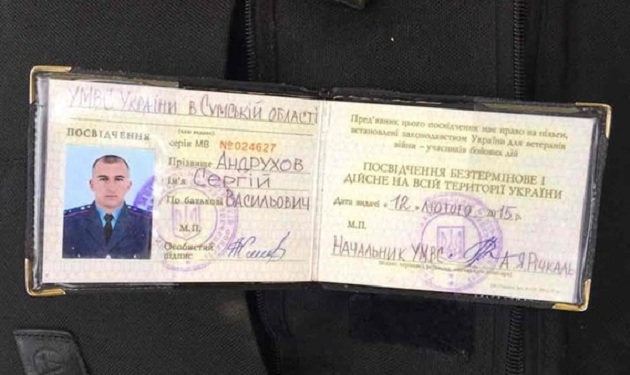 УМВС УКРАЇНИ В СУМСЬКІЙ ОБЛАСТІ
ПОСВІДЧЕННЯ
серія МВ №024627
Прізвище АНДРУХОВ
Ім'я СЕРГІЙ
По батькові ВАСИЛЬОВИЧ
М.П.
Особистий
підпис
Пред'явник цього посвідчення має право на пільги,
встановлені законодавством України для ветеранів
війни – учасників бойових дій
ПОСВІДЧЕННЯ БЕЗТЕРМІНОВЕ І
ДІЙСНЕ НА ВСІЙ ТЕРИТОРІЇ УКРАЇНИ
Дата видачі «12» ЛЮТОГО 2015р.
М.П.
НАЧАЛЬНИК УМВС